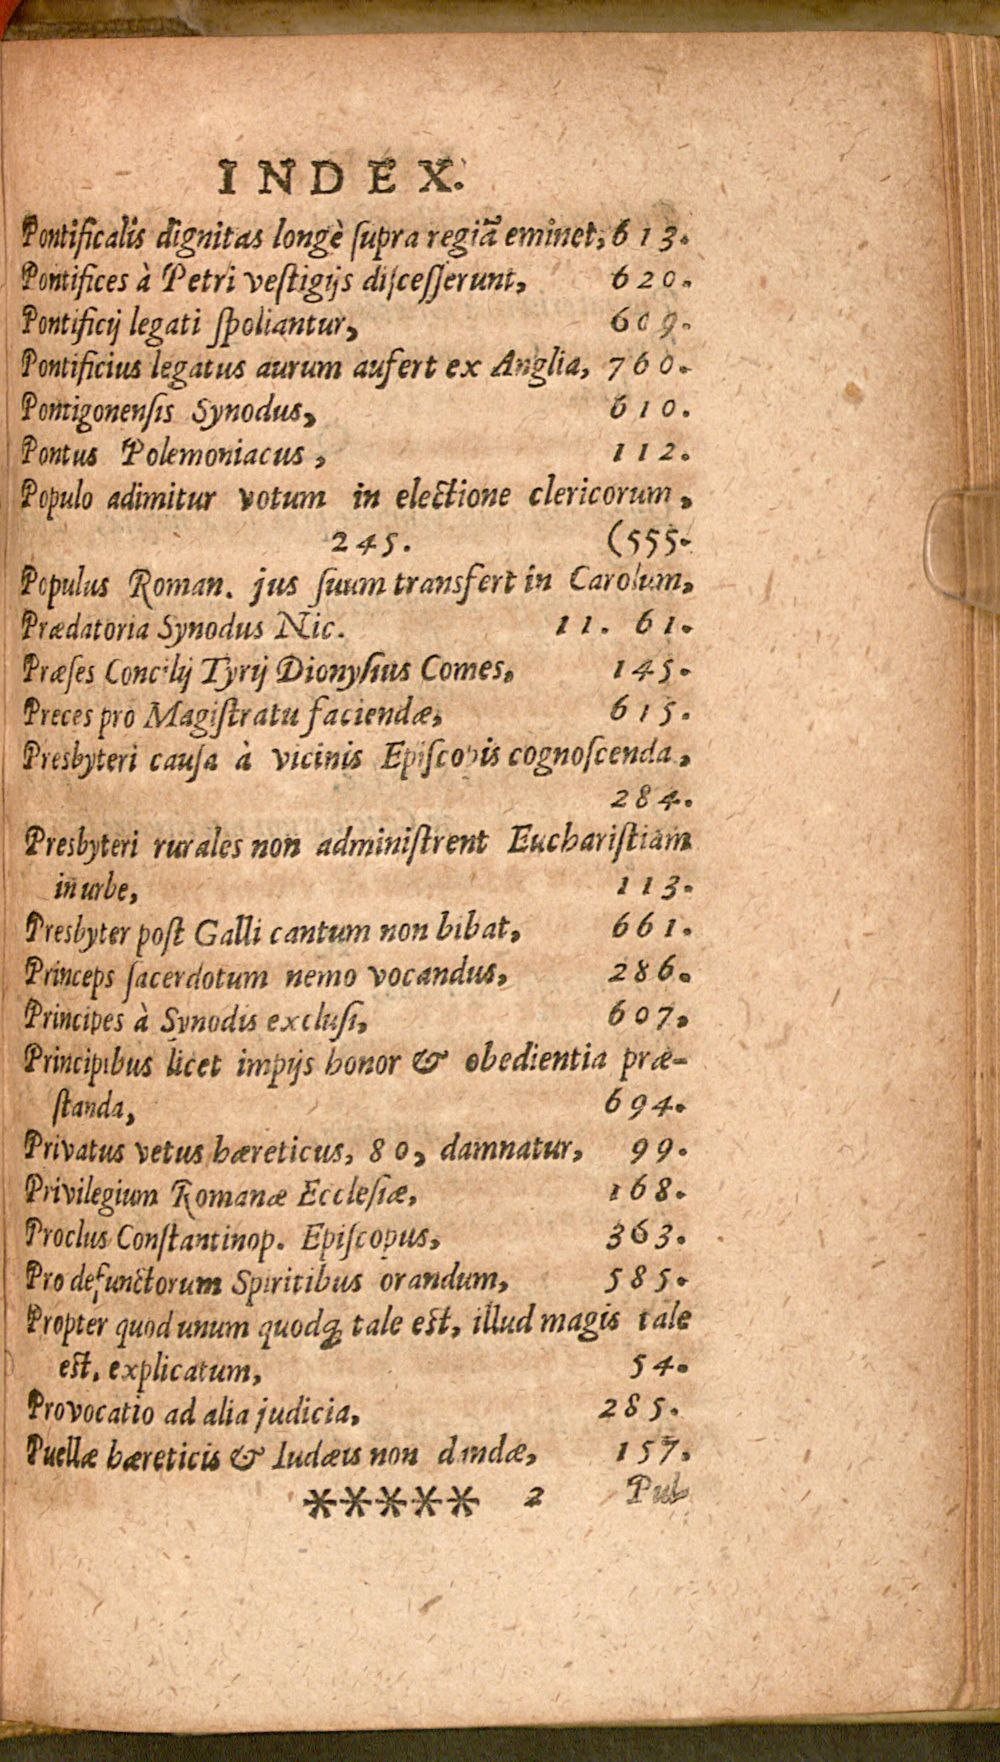 INDEX.
Pontificalis dignitas longè ſupra regiã eminet, 613.
Pontifices à Petri veſtigijs diſceſſerunt, 620.
Pontificij legati ſpoliantur, 609.
Pontificius legatus aurum aufert ex Anglia, 760.
Pontigonenſis Synodus, 610.
Pontus Polemoniacus, 112.
Populo adimitur votum in electione clericorum,
245. (555.
Populus Roman. jus ſuum transfert in Carolum,
Prædatoria Synodus Nic. 11. 61.
Præſes Concilij Tyrij Dionyſius Comes, 145.
Preces pro Magiſtratu faciendæ, 615.
Presbyteri cauſa à vicinis Epiſcopis cognoſcenda,
284.
Presbyteri rurales non adminiſtrent Euchariſtiam
in urbe, 113.
Presbyter poſt Galli cantum non bibat, 661.
Princeps ſacerdotum nemo vocandus, 286.
Principes à Synodis excluſi, 607,
Principibus licet impijs honor & obedientia præ-
ſtanda, 694.
Privatus vetus hæreticus, 80, damnatur, 99.
Privilegium Romanæ Eccleſiæ, 168.
Proclus Conſtantinop. Epiſcopus, 363.
Pro defunctorum Spiritibus orandum, 585.
Propter quod unum quodq; tale eſt, illud magis tale
eſt, explicatum, 54.
Provocatio ad alia judicia, 285.
Puellæ hæreticis & Iudæis non dandæ, 157.
***** 2 Pul-